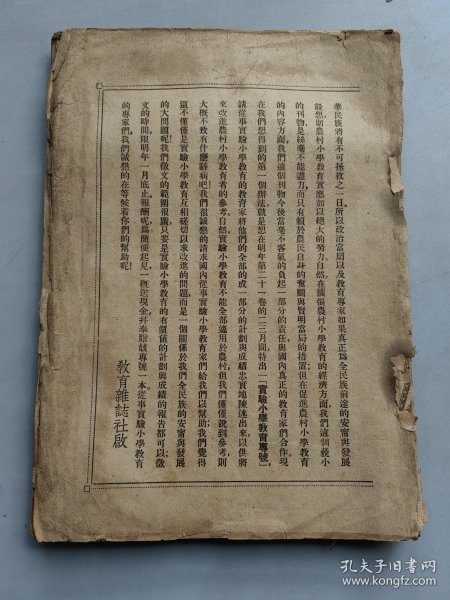 華民族將有不可挽救之一日所以政治當局以及教育專家如果真正爲全民族前途的安甯與發展
設想則農村小學教育實應加以絕大的努力自然在擴張農村小學教育的經濟方面我們這個藐小
的刊物是絲毫不能盡力而只有賴於農民自身的奮鬭與賢明當局的措置但在促進農村小學教育
的內容方面我們這個刊物今後當毫不客氣的負起一部分的責任與國內真正的教育家們合作現
在我們想得到的第一個辦法就是想在明年第二十一卷的二三月間特出一「實驗小學教育專號」
請從事實驗小學教育的教育家將他們的全部的或一部分的計劃與成績忠實地陳述出來以供將
來改進農村小學教育者的參考自然實驗小學教育不能全部適用於農村但我們僅僅說到參考則
大概不致有什麼辭病吧我們很誠懇的請求國內從事實驗小學教育家們給我們以幫助我們覺得
這不僅僅是實驗小學教育互相磋切以求改進的問題而是一個關係於我們全民族的安甯與發展
的大問題呢我們徵文的範圍很廣只要是實驗小學教育的有價值的計劃與成績的報告都可以徵
文的時間限明年一月底止報酬呢爲簡便起見一概送現金幷奉贈該專號一本從事實驗小學教育
的專家們我們誠懇的在等候着你們的幫助呢
教育雜誌社啟
孔夫子旧书网
www.kongfz.com